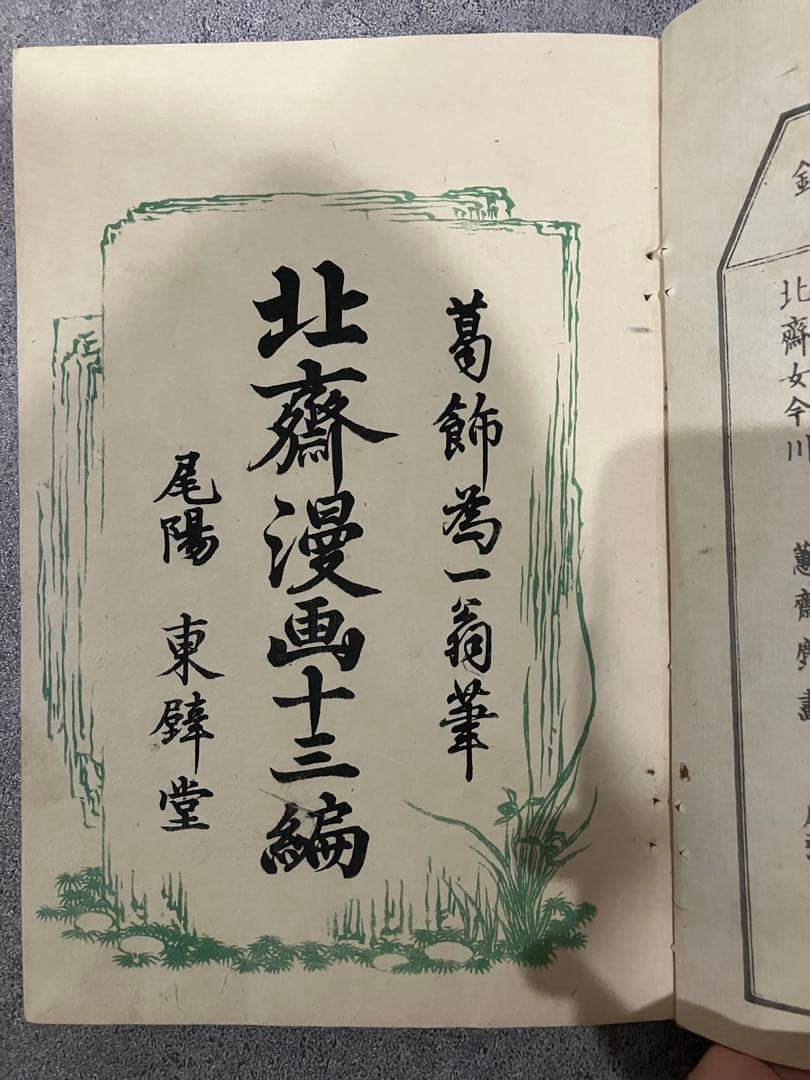 葛飾為一翁筆
北齋漫画十三編
尾陽 東壁堂
北齋女今川